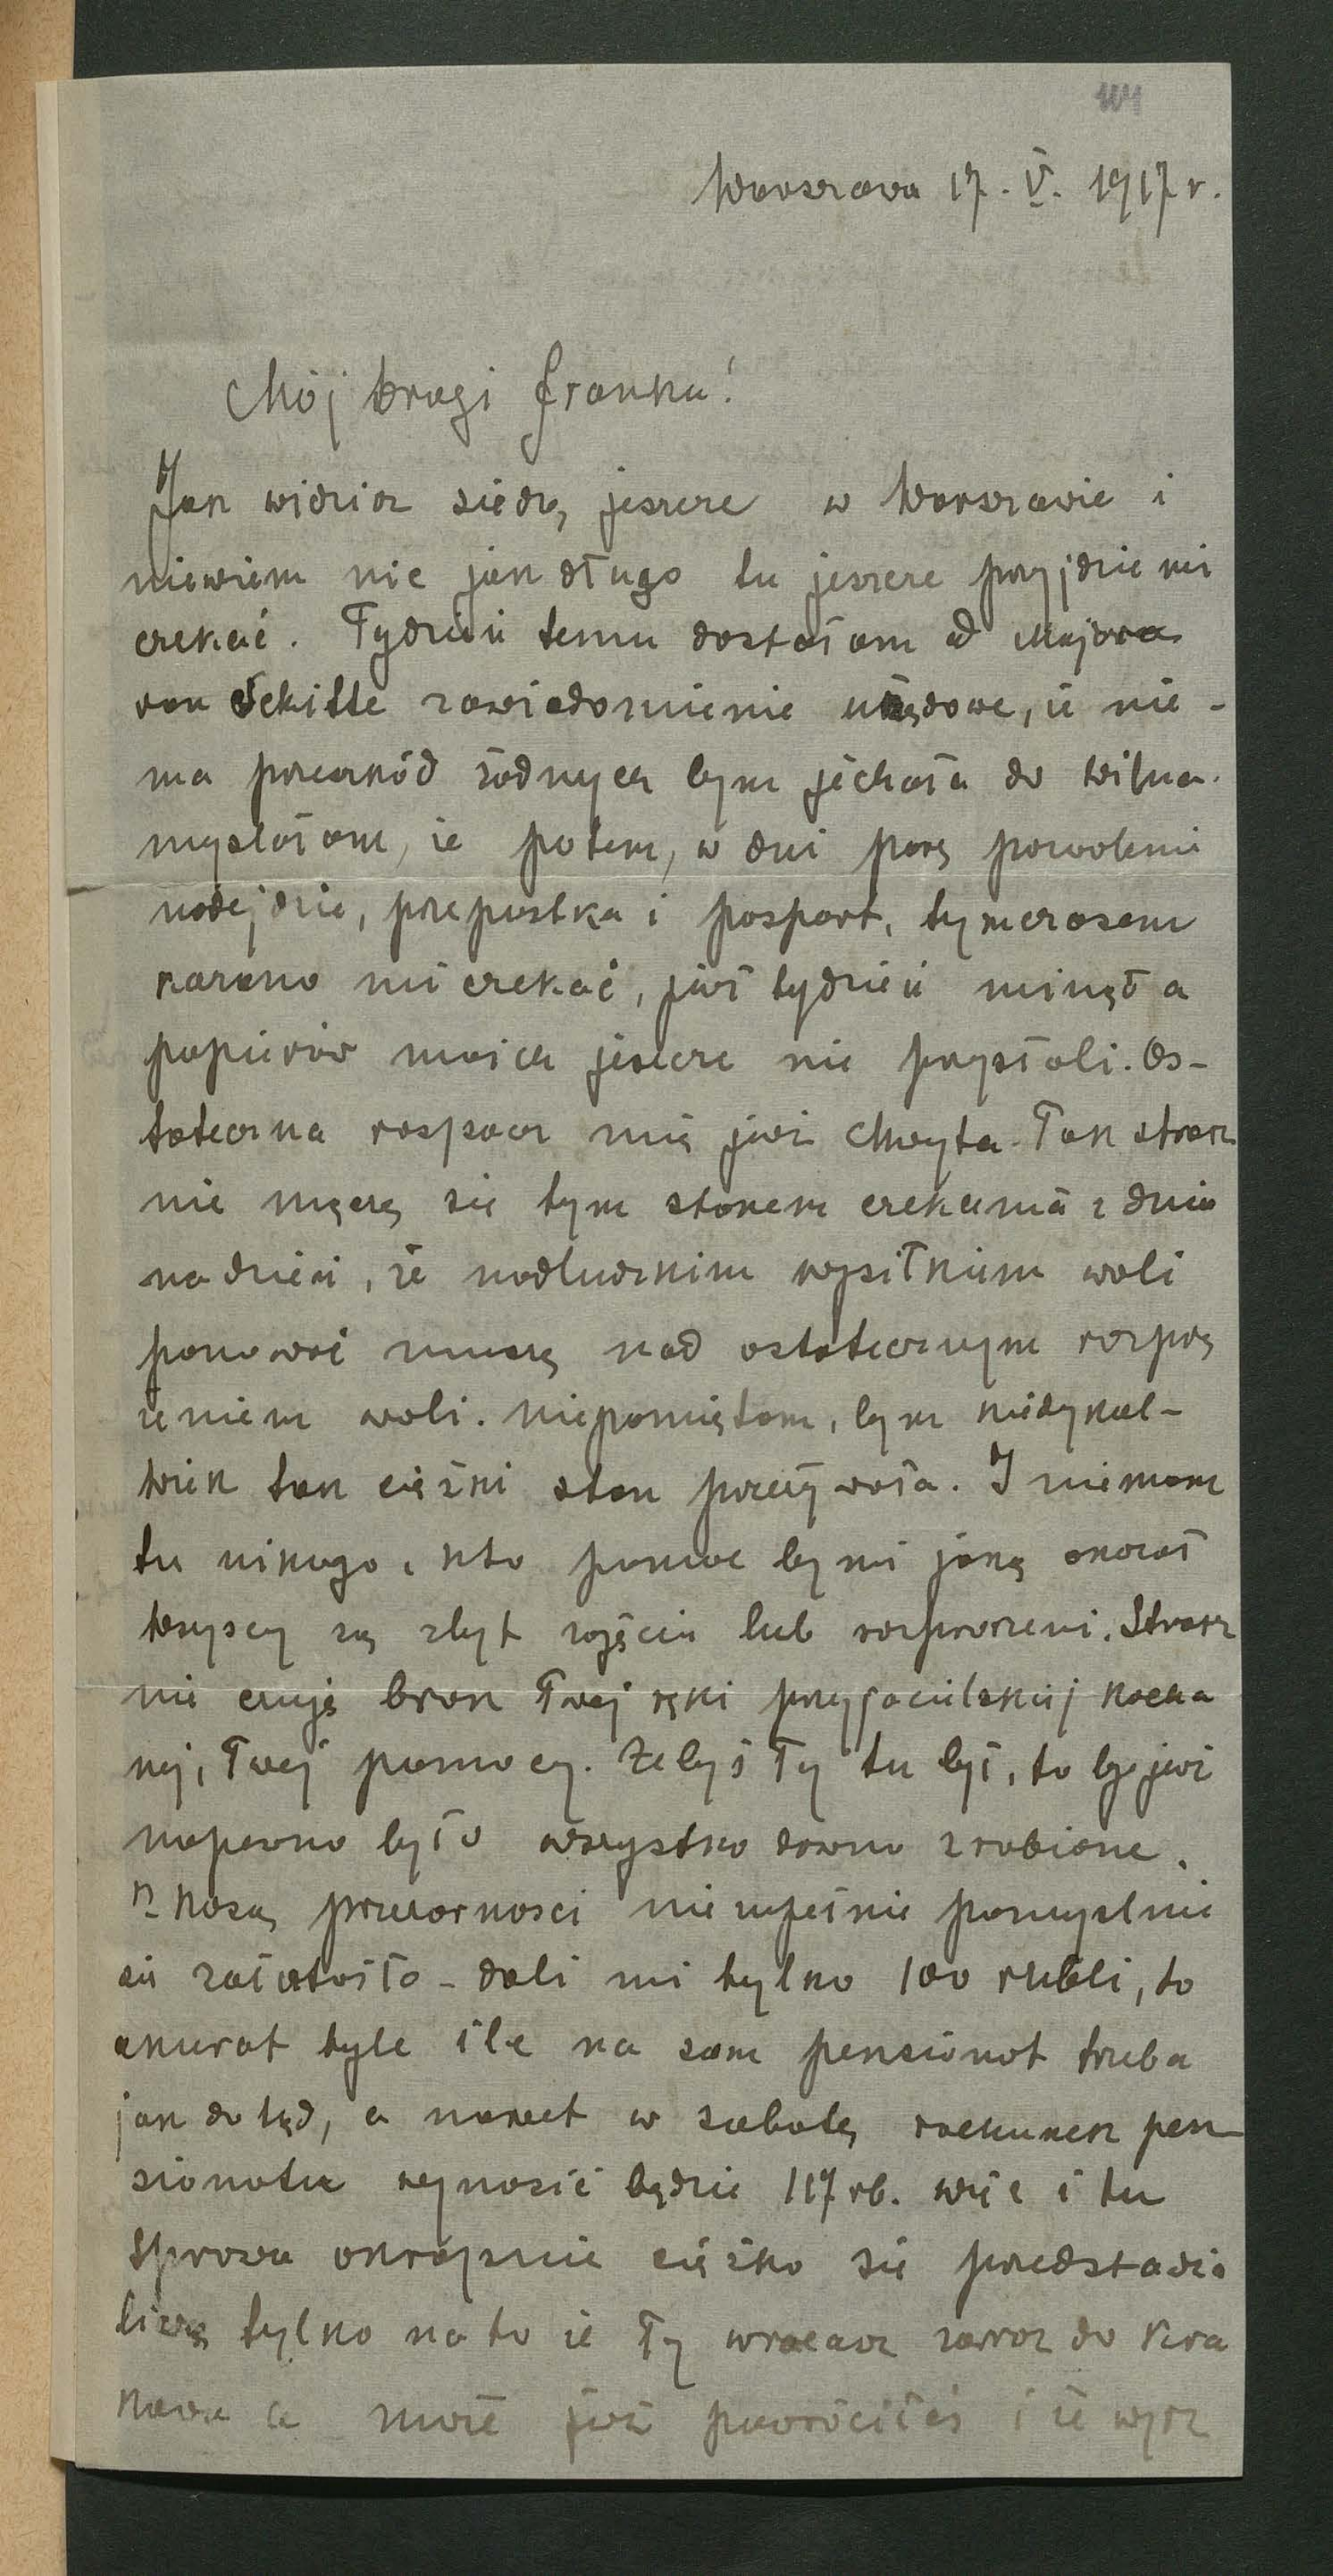 104
Warszawa 17. V. 1917 r.
Mój drogi Franku!
Jak widzisz siedzę jeszcze w Warszawie i
niewiem nic jak długo tu jeszcze przyjdzie mi
czekać. Tydzień temu dostałam od Majora
von zawiadomienie urzędowe, iż nie-
ma przeszkód żadnych bym jechała do Wilna.
myślałam, że potem, w dni parę pozwolenie
nadejdzie, przepustka i paszport, tymczasem
kazano mi czekać, już tydzień minął a
papierów moich jeszcze nie przysłali. Os-
tateczna rozpacz mię już chwyta. Tak strasz
nie męczę się tym stanem czekania z dnia
na dzień, że nadludzkim wysiłkiem woli
panować muszę nad ostatecznym rozprzę
żeniem woli. niepamiętam, bym kiedykol-
wiek tak ciężki stan przeżywała. I niemam
tu nikogo, kto pomoc by mi jaką okazał
wszyscy są zbyt zajęci lub rozproszeni. Strasz
nie czuję brak Twej ręki przyjacielskiej kocha
nej, Twej pomocy. Żebyś Ty tu był, to by już
napewno było wszystko dawno zrobione.
Z kasą przezorności nie zupełnie pomyślnie
się załatwiło – dali mi tylko 100 rubli, to
akurat tyle ile na sam pensionat trzeba
jak dotąd, a nawet w sobotę rachunek pen-
sionatu wynosić będzie 117 rb. więc i tu
sprawa okropnie ciężko się przedstawia
liczę tylko na to że Ty wracasz zaraz do Kra
kowa a może już powróciłeś i że wysz